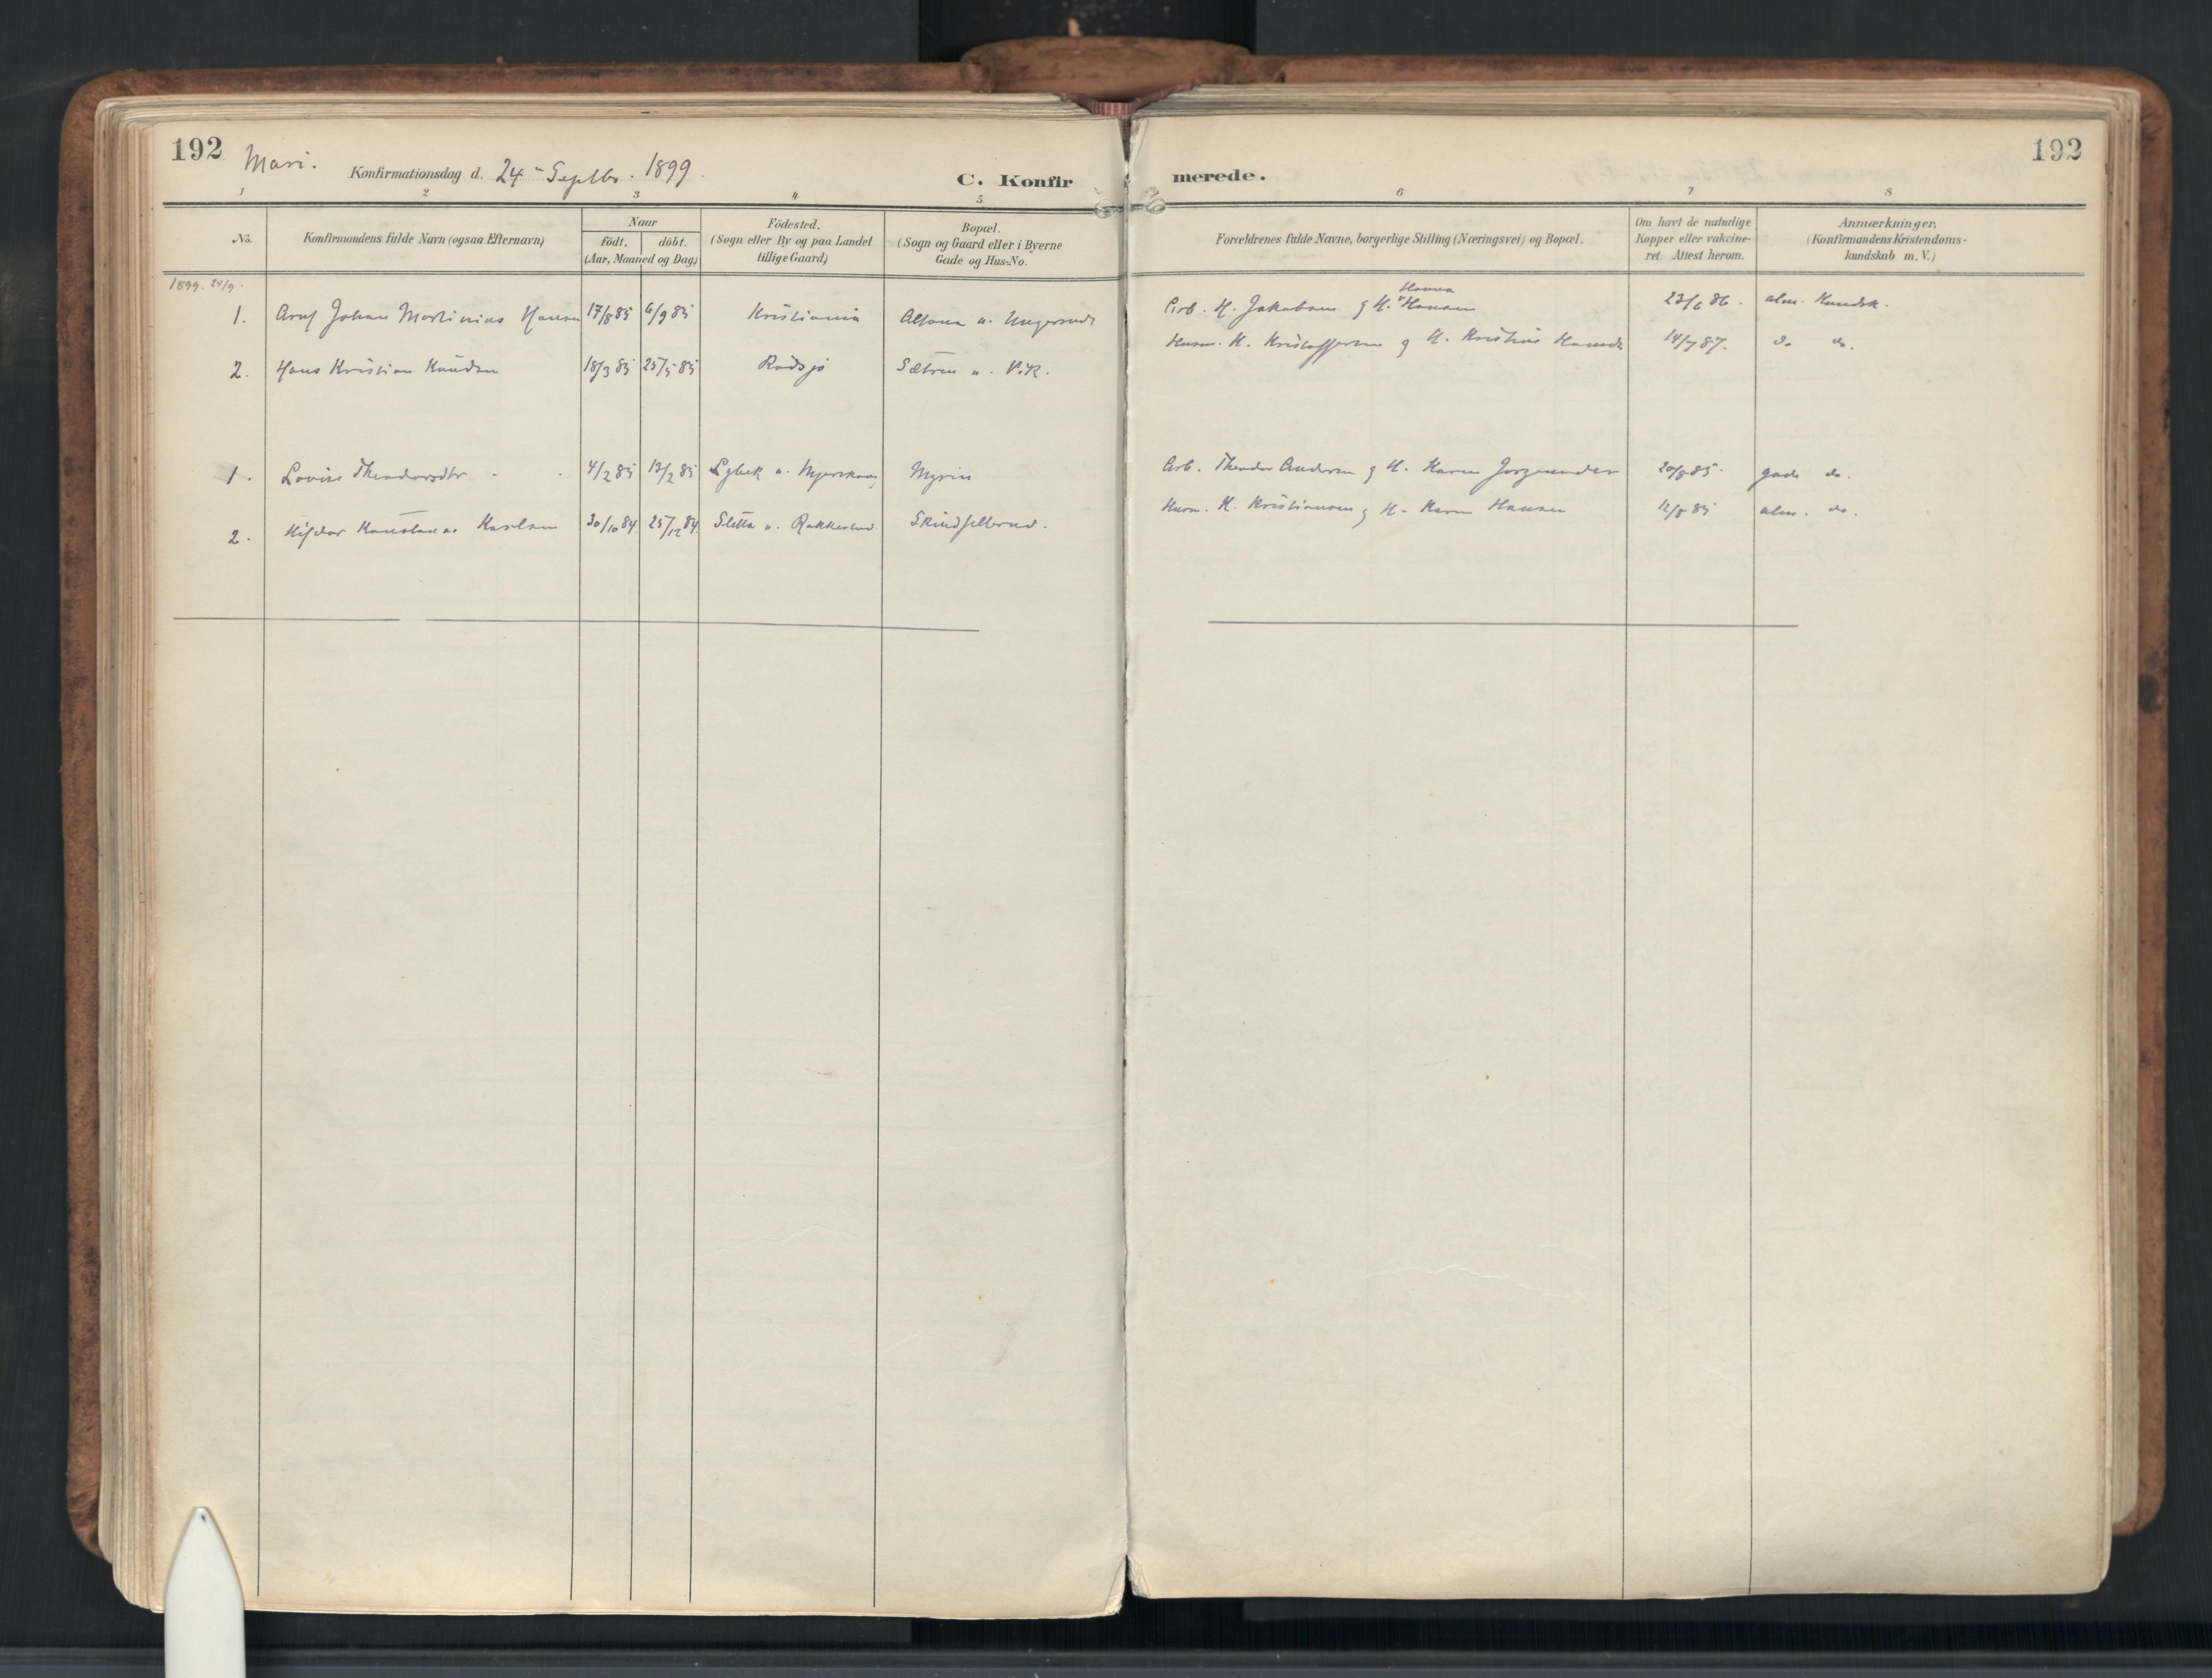 192
Mari.
Konfirmationsdag d. 24 Septbr. 1899.
C. Konfirmerede.
192
1 2 3 4 5 6 7 8
No.
Konfirmandens fulde Navn (ogsaa Efternavn)
Naar
födt. döbt.
(Aar, Maaned og Dag)
Födested.
(Sogn eller By og paa Landet
tillige Gaard)
Bopæl.
(Sogn og Gaard eller i Byerne
Gade og Hus-No.
Forældrenes fulde Navne, borgerlige Stilling (Næringsvei) og Bopæl.
Om havt de naturlige
Kopper eller vakcine-
ret. Attest herom.
Anmærkninger.
(Konfirmandens Kristendoms-
kundskab m. V.)
1899. 24/9.
1. Johan Martinius Hansen 17/8 85 6/9 85 Kristiania Altona u. Ungersrud Arb. H. Jakobsen g H. Hanna Hansen 23/6 86. alm. Kundsk.
2. Hans Kristian Knudsen 18/3 85 25/5 85 Rødsjø Sætren u. Husm. K. Kristoffersen g H. Kristine 14/7 87. do do.
1. Lovise Theodorsdtr 4/2 85 13/2 85 u. Myrin Arb. Theodor Andersen g H. Karen 20/8 85. gode do.
2. Karlsen 30/10 84. 25/12 84. Sletta u. Rakkestad Skindfellerud. Husm. K. Kristiansen g H. Karen Hansen 12/8 85 alm. do.